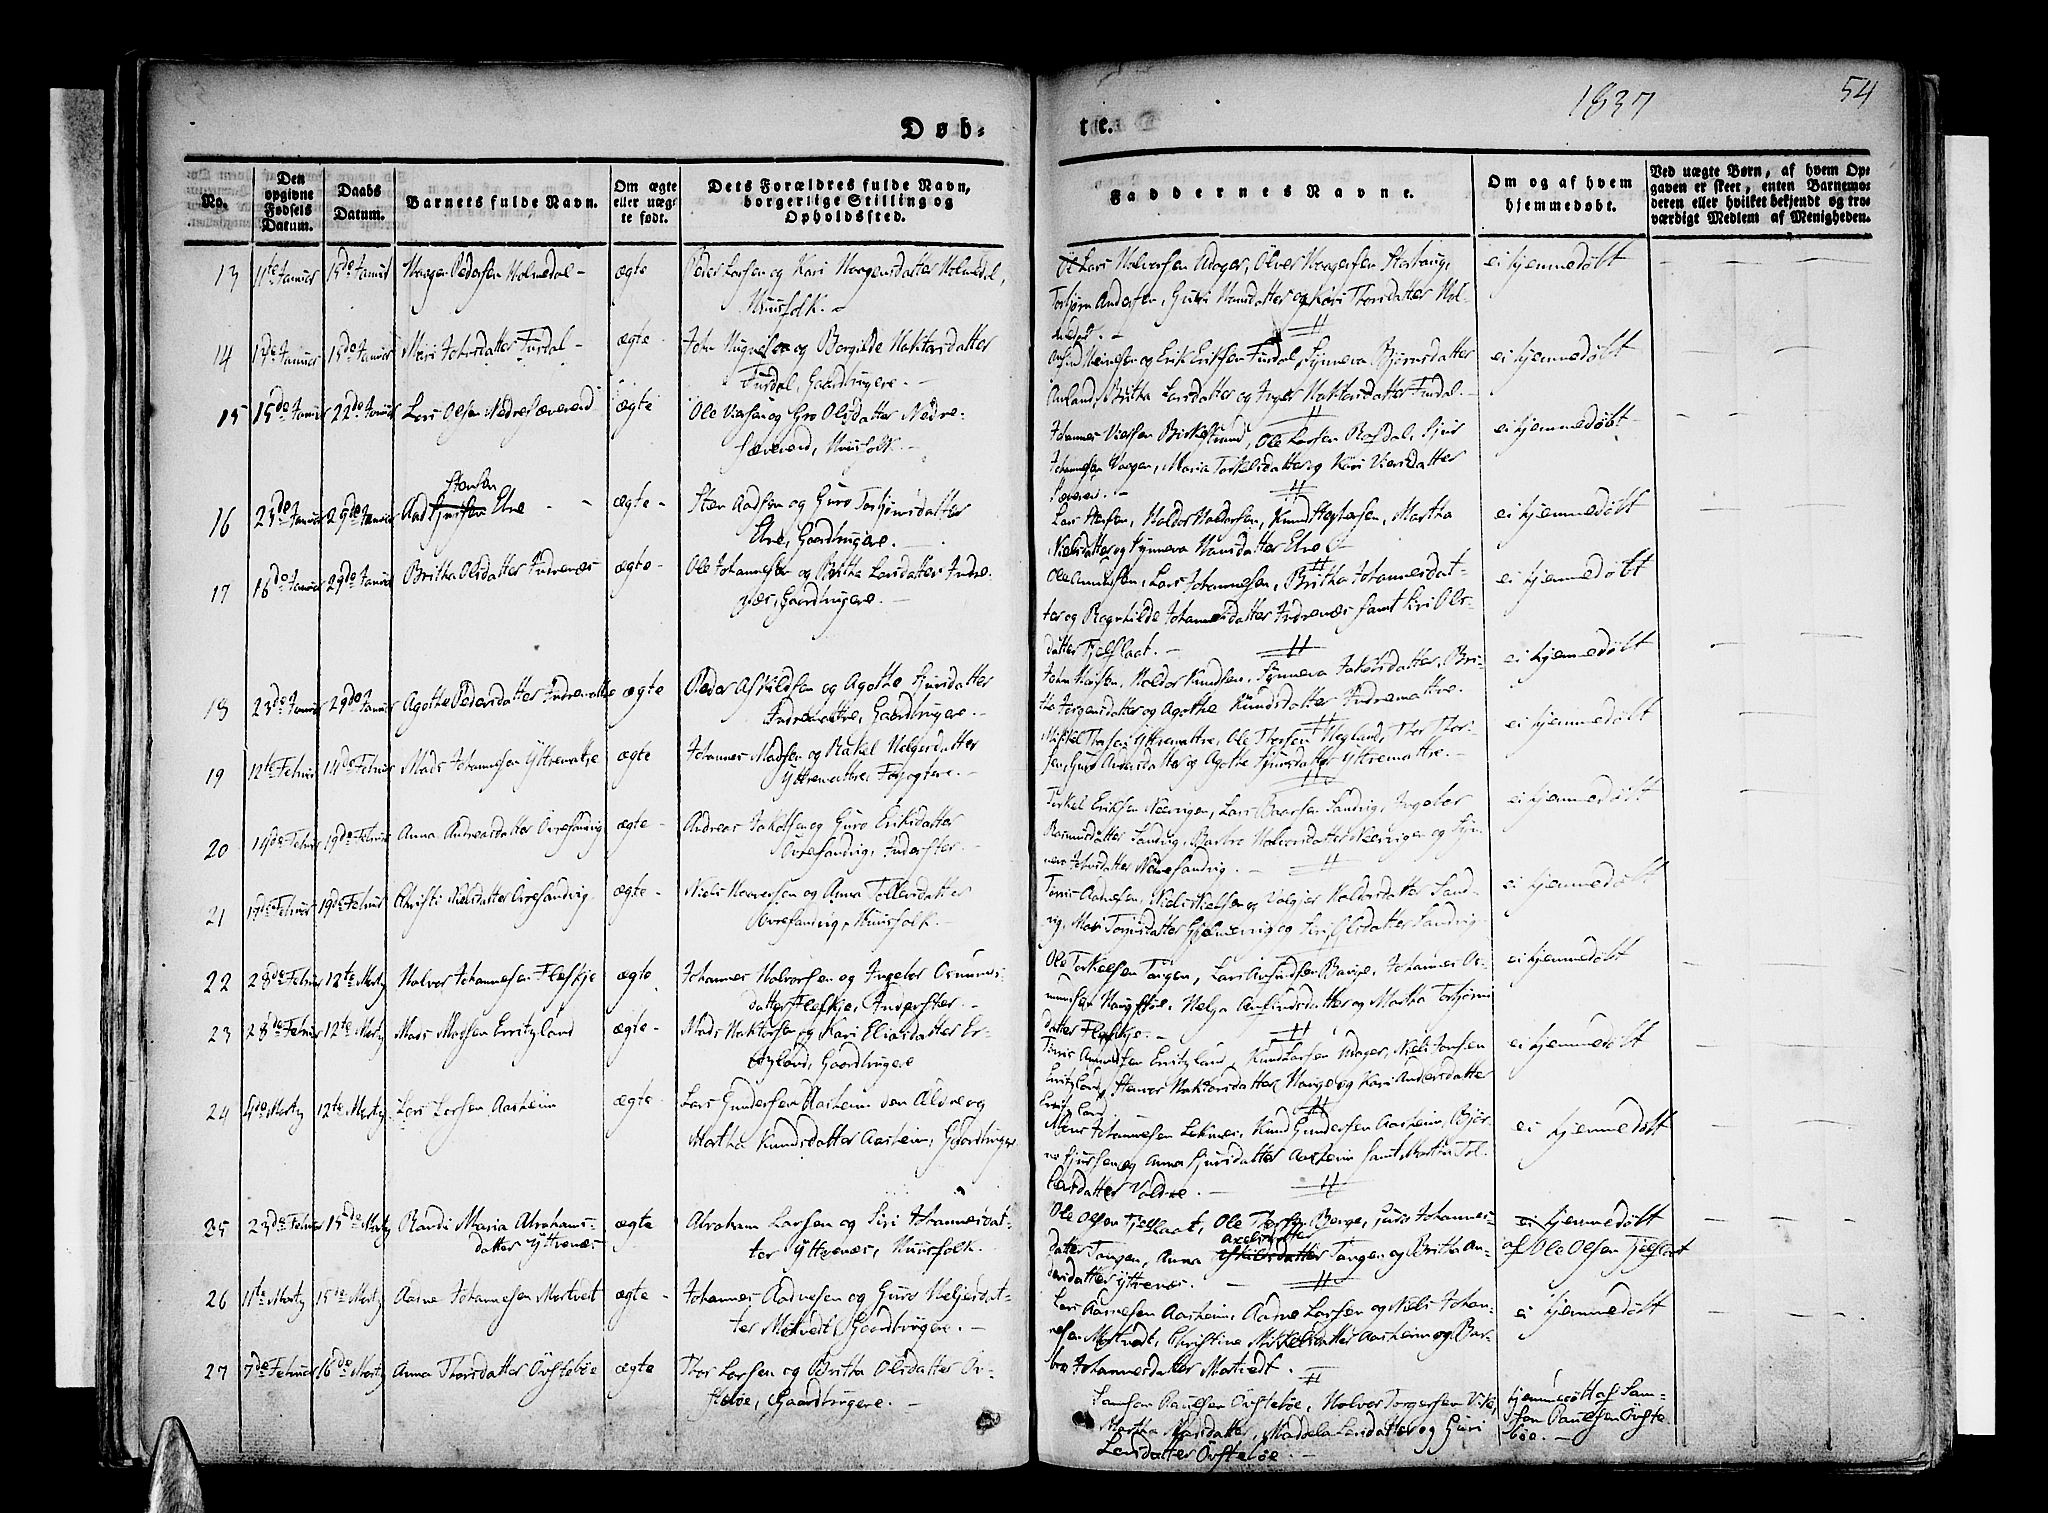 1837
54
Døb-
te.
No.
Den
opgivne
Fødsels
Datum.
Daabs
Datum.
Barnets fulde Navn.
Om ægte
eller uæg-
te født.
Dets Forældres fulde Navn,
borgerlige Stilling og
Opholdssted.
Faddernes Navne.
Om og af hvem
hjemmedøbt.
Ved uægte Børn, af hvem Op-
gaven er skeet, enten Barnemo-
deren eller hvilket bekjendt og tro-
værdigt Medlem af Menigheden.
13 11te Januar 15de Januar Haagen Pedersen Holmedal - ægte Peder Larsen og Kari Haagensdatter Holmedal,
Huusfolk. -
Lars Halvorsen Udager, Ölver Haagensen
Torbjørn Andersen, Guri Hansdatter og Kari Thorsdatter Hol-
medal. -
ei hjemmedøbt
14 Januar 15de Januar Mari Johnsdatter Fusdal - ægte - John og Borgilde Haktorsdatter
Fusdal, Gaardbrugere. -
og Erik Eriksen Fusdal, Synneva Björnsdatter
Britha Larsdatter og Inger Haktorsdatter Fusdal. -
ei hjemmedøbt
15 15de Januar 22de Januar Lars Olsen Nedre Sæverud ægte Ole og Gro Olsdatter Nedre-
Sæverud, Huusfolk. -
Johannes Birkestrand, Ole Larsen Rafdal, Sjur
Johannesen Vaagen, Maria Torkelsdatter og Kari
Sæverud. -
ei hjemmedøbt
16 23de Januar 29de Januar Aad Steensen Elve - ægte - Steen Aadsen og Guro Torbjörnsdatter
Elve, Gaardbrugere. -
Lars Steensen, Haldor Haldorsen, Knud Stephensen, Martha
Nielsdatter og Synneva Hansdatter Elve -
ei hjemmedøbt
17 16de Januar 29de Januar Britha Olsdatter Indrenæs ægte - Ole Johannesen og Britha Larsdatter Indre-
næs, Gaardbrugere. -
Ole Amundsen, Lars Johannesen, Britha Johannesdat-
ter og Ragnhilde Johannesdatter Indrenæs samt Siri Ols-
datter Tjelflaat. -
ei hjemmedøbt
18 23de Januar 29de Januar Agothe Pedersdatter Indremattre ægte Peder Askildsen og Agothe Sjursdatter
Indremattre, Gaardbrugere. -
John Haldor Knudsen, Synneva Jakobsdatter, Bri-
the Torgersdatter og Agothe Knudsdatter Indremattre.
ei hjemmedøbt
19 12te Februar 14de Februar Mads Johannesen Yttremattre ægte Johannes Madsen og Rakel Helgesdatter
Yttremattre, Forpagtere. -
Mikkel Thorsen Yttremattre, Ole Thorsen Hegland, Thor Thor-
sen, Guro Andersdatter og Agothe Sjursdatter Yttremattre. -
ei hjemmedøbt
20 14de Februar 19de Februar Anna Andreasdatter Övresandvig ægte - Andreas Jakobsen og Guro Eriksdatter
Övresandvig, Inderster. -
Torkel Eriksen Nervigen, Lars Sandvig, Ingebor
Rasmusdatter Sandvig, Barbro Halvorsdatter Nervigen og Syn-
neva Johnsdatter Nedresandvig. -
ei hjemmedøbt
21 17de Februar 19de Februar Christi Nielsdatter Övresandvig ægte - Niels og Anna Tollevsdatter
Övresandvig, Huusfolk. -
Tørris Aadnesen, Niels Nielsen og Valgjer Haldorsdatter Sand-
vig, Mari Gjelmervig og Siri Olsdatter Sandvig.
ei hjemmedøbt
22 28de Februar 12te Martz Halvor Johannesen Fleskje ægte Johannes Halvorsen og Ingebor Osmunds-
datter Fleskje, Inderster. -
Ole Torkelsen Tangen, Lars Johannes Os-
mundsen Helga og Martha Torbjørns-
datter Fleskje. -
ei hjemmedøbt
23 28de Februar 12te Martz Mads Madsen Eritzland ægte - Mads Haktorsen og Kari Eliasdatter Er-
itzland, Gaardbrugere
Tørris Eritzland, Knud Larsen Udager, Niels Jonsen
Eritzland, Haktorsdatter og Kari Andersdatter
Eritzland
ei hjemmedøbt
24 4de Martz 12te Martz Lars Larsen Aasheim ægte - Lars Gundersen Aasheim den Ældre og
Martha Knudsdatter Aasheim, Gaardbrugere
Johannesen Leknæs, Knud Gundersen Aasheim, Bjør-
no Sjursen og Anna Sjursdatter Aasheim samt Martha Tol-
levsdatter Valdre. -
ei hjemmedøbt
25 23de Februar 15de Martz Randi Maria Abrahams-
datter Yttrenæs - ægte Abraham Larsen og Siri Johannesdat-
ter Yttrenæs, Huusfolk. -
Ole Olsen Tjelflaat, Ole Thorsen Berge, Guro Johannes-
datter Tangen, Anna Axelsdatter Tangen og Britha An-
dersdatter Yttrenæs. -
hjemmedøbt
af Ole Olsen Tjelflaat
26 11te Martz 15de Martz Aadne Johannesen Matvedt ægte - Johannes Aadnesen og Guro Helgesdat-
ter Matvedt, Gaardbrugere. -
Lars Aadnesen Aasheim, Aadne Larsen og Niels Johan-
nesen Matvedt, Christine Mikkelsdatter Aasheim og Bar-
bro Johannesdatter Matvedt.
ei hjemmedøbt
27 7de Februar 16de Martz Anna Thorsdatter Övstebøe ægte Thor Larsen og Britha Olsdatter Öv-
stebøe, Gaardbrugere. -
Samson Paulsen Övstebøe, Halvor Torgersen
Martha Madsdatter, Maddela Larsdatter og Guri
Larsdatter Övstebøe. -
hjemmedøbt af Sam-
son Paulsen Övste-
bøe. -